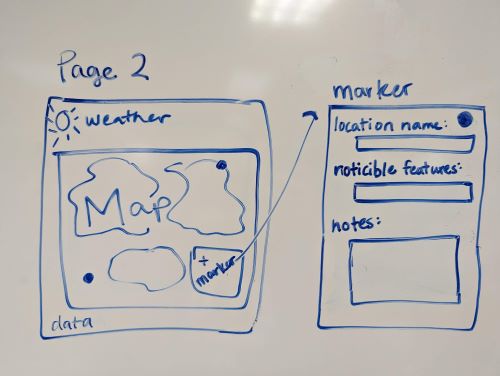 Page 2
weather
Map
+
marker
data
marker
location name:
noticible features:
notes: